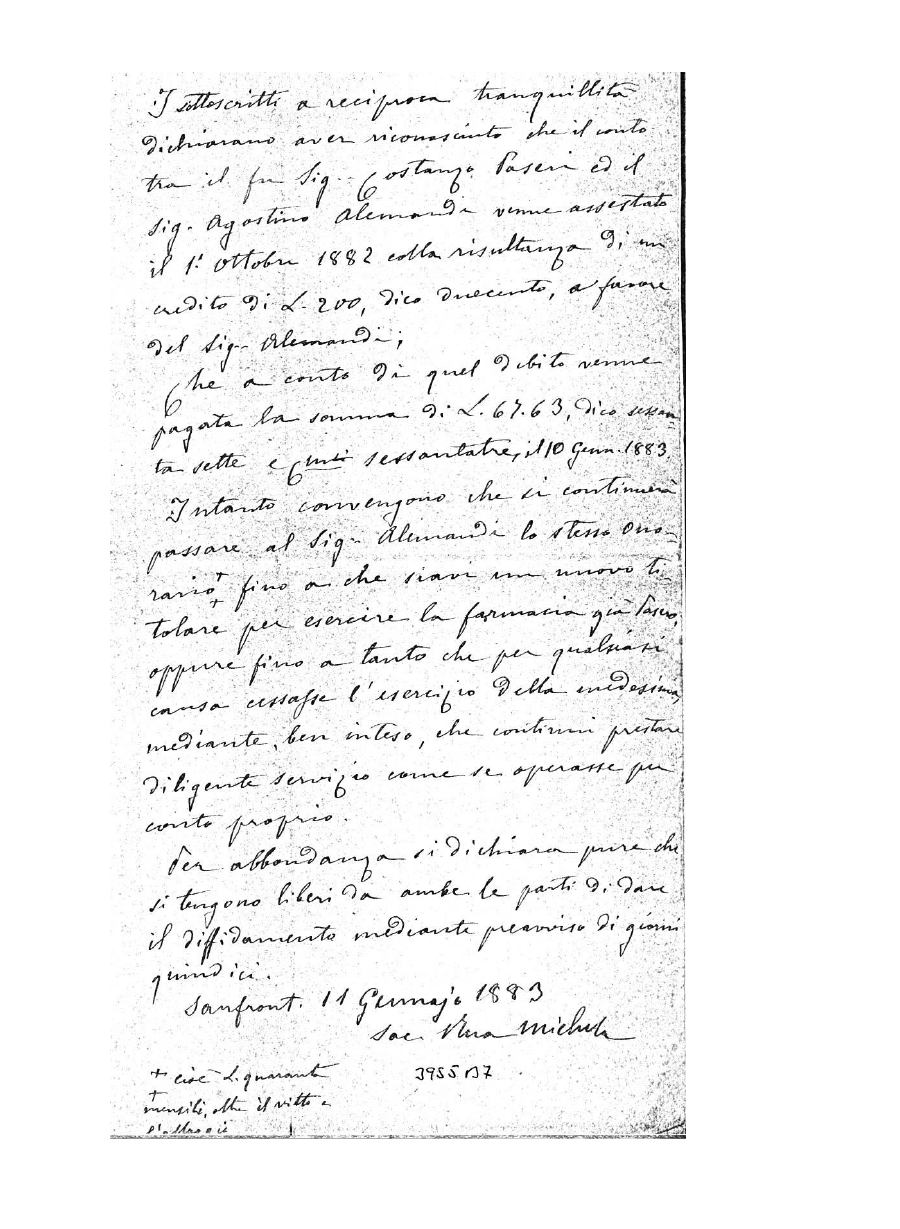 I sottoscritti a reciproca tranquillità
dichiarano aver riconosciuto che il conto
tra il fu Sig. Costanzo Paseri ed il
Sig. Agostino Alemandi venne assestato
il 1.° Ottobre 1882 colla risultanza di un
credito di L. 200, dico duecento, a favore
del Sig. Alemandi;
Che a conto di quel debito venne
pagata la somma di L. 67.63, dico sessan
ta sette e Cmi sessantatre, il 10 Genn. 1883.
Intanto convengono che si continuerà
passare al Sig. Alemandi lo stesso Ono-
rario + fino a che siavi un nuovo ti-
tolare per esercire la farmacia già Paseri,
oppure fino a tanto che per qualsiasi
causa cessasse l'esercizio della medesima,
mediante, ben inteso, che continui prestare
diligente servizio come se operasse per
conto proprio.
Per abbondanza si dichiara pure che
si tengono liberi da ambe le parti di dare
il diffidamento mediante preavviso di giorni
quindici.
Sanfront. 11 Gennajo 1883
Sac. Michele
+ cioè L. quaranta
mensili, oltre il vitto e
l'alloggio
3955 B7